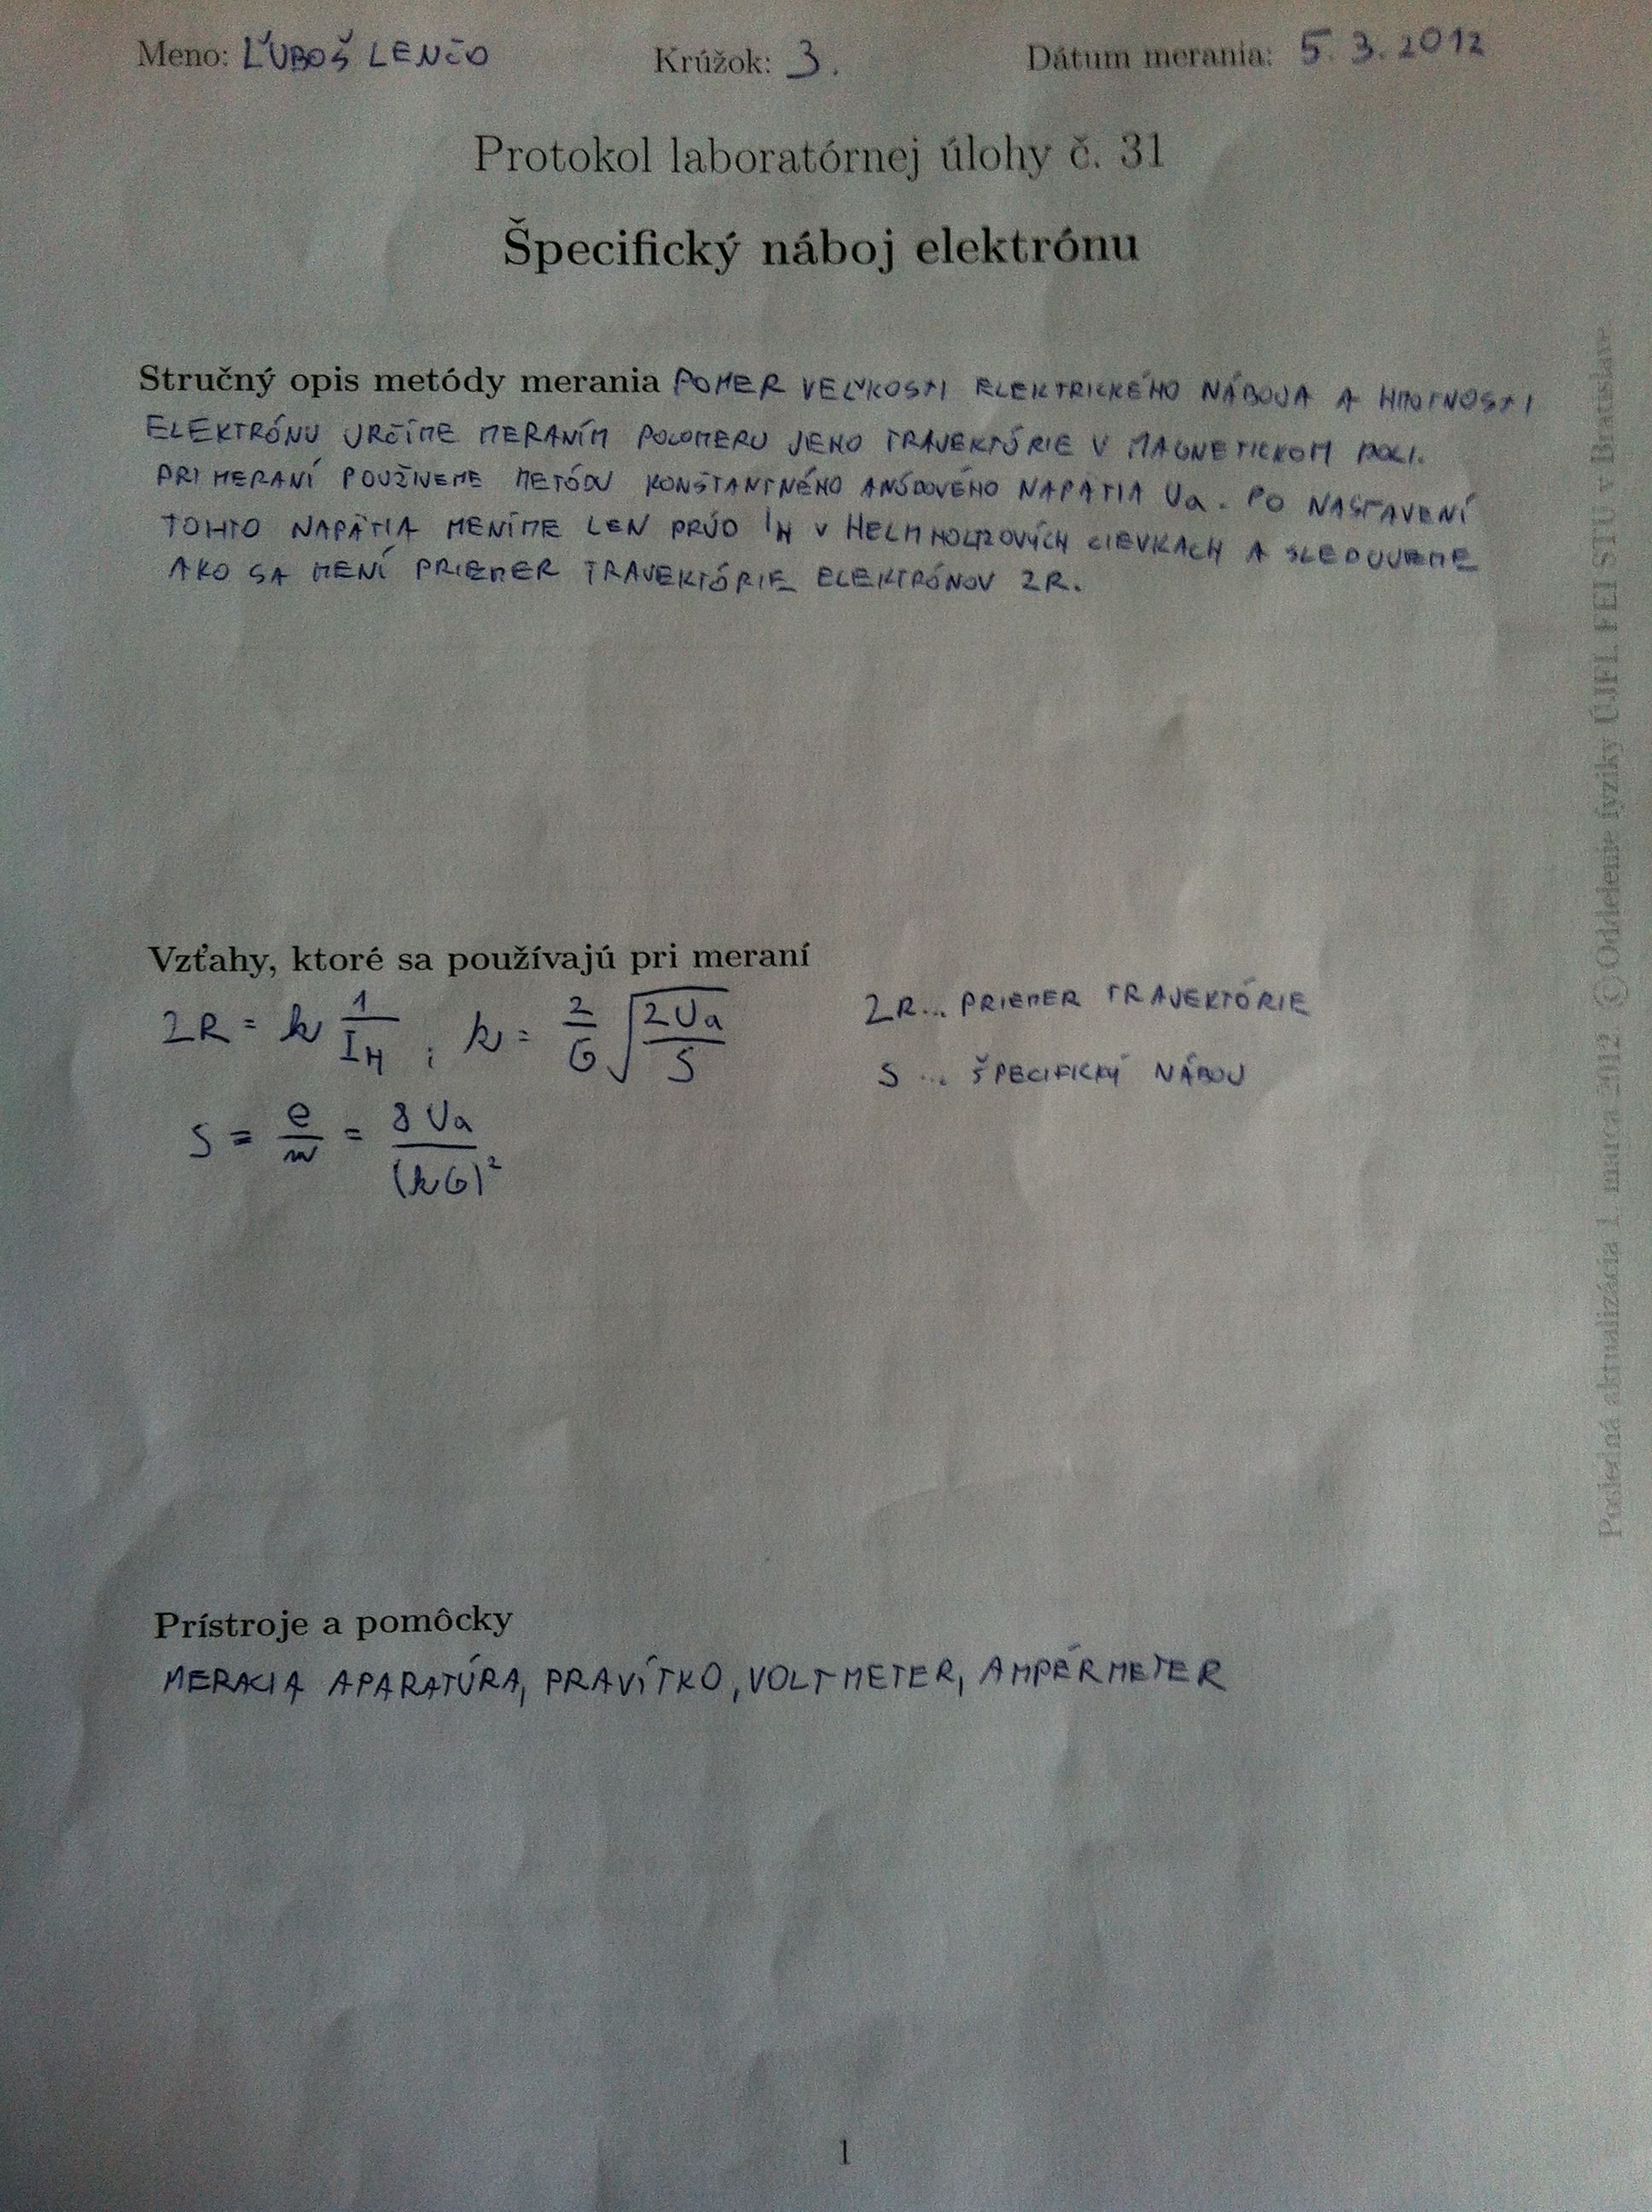 Meno: ĽUBOŠ LENČO Krúžok: 3. Dátum merania: 5. 3. 2012
Protokol laboratórnej úlohy č. 31
Špecifický náboj elektrónu
Stručný opis metódy merania POMER VEĽKOSTI ELEKTRICKÉHO NÁBOJA A HMOTNOSTI
ELEKTRÓNU URČÍME MERANÍM POLOMERU JEHO TRAJEKTÓRIE V MAGNETICKOM POLI.
PRI MERANÍ POUŽIJEME METÓDU KONŠTANTNÉHO ANÓDOVÉHO NAPÄTIA Ua. PO NASTAVENÍ
TOHTO NAPÄTIA MENÍME LEN PRÚD IH V HELMHOLTZOVÝCH CIEVKACH A SLEDUJEME
AKO SA MENÍ PRIEMER TRAJEKTÓRIE ELEKTRÓNOV 2R.
Vzťahy, ktoré sa používajú pri meraní
2R = k 1/IH ; k = 2/G √(2Ua/S)
2R... PRIEMER TRAJEKTÓRIE
S ... ŠPECIFICKÝ NÁBOJ
S = e/m = 8Ua/(kG)²
Prístroje a pomôcky
MERACIA APARATÚRA, PRAVÍTKO, VOLTMETER, AMPÉRMETER
1
Posledná aktualizácia 1. marca 2012 ©Oddelenie fyziky ÚJFI, FEI STU v Bratislave